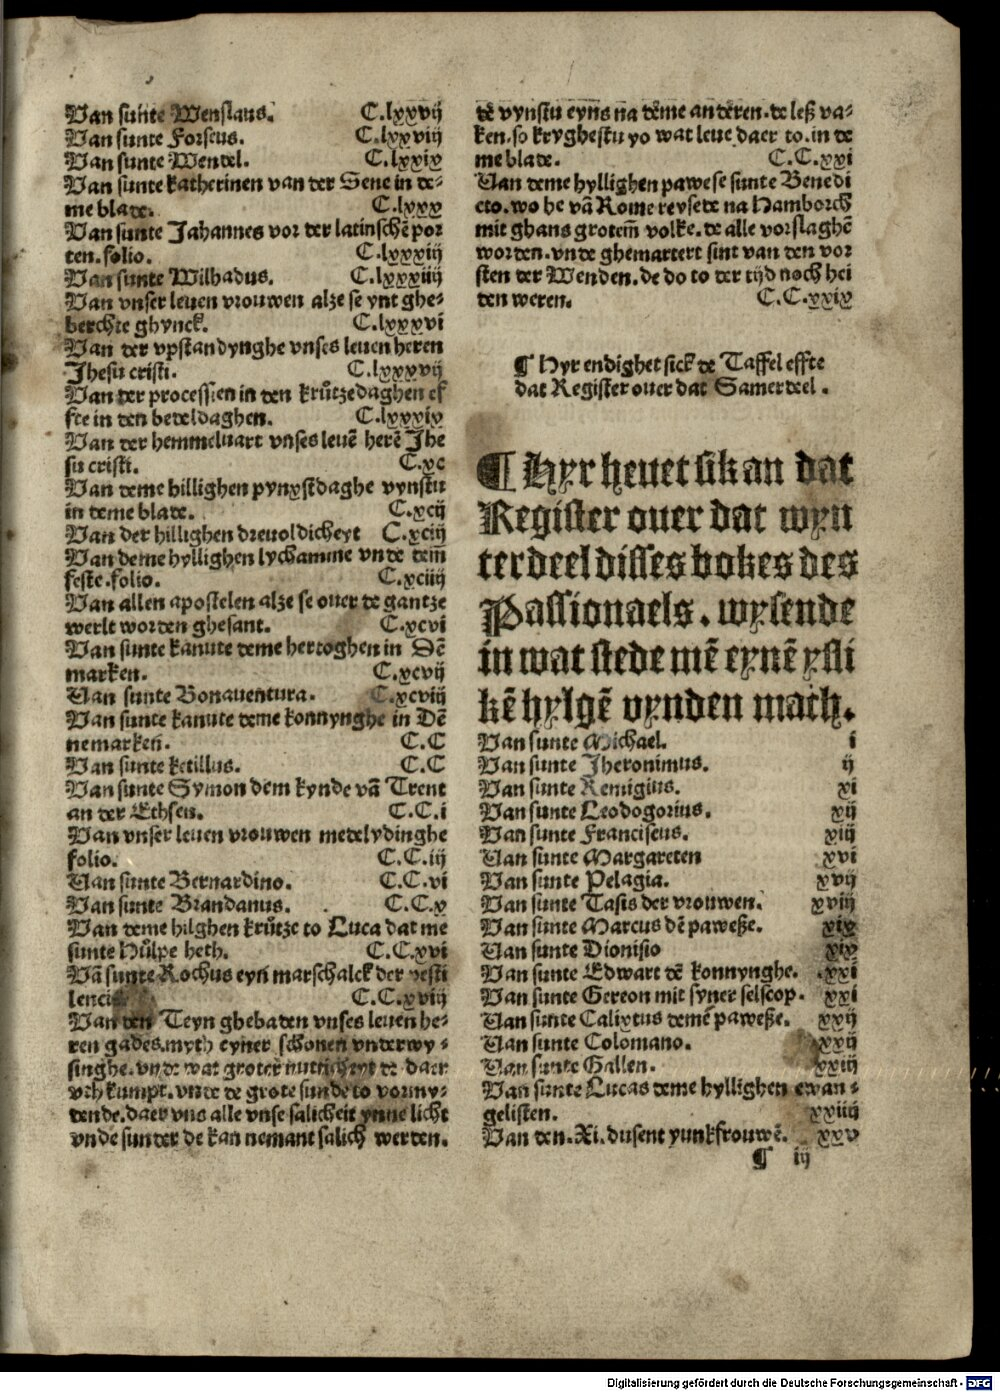 Van sunte Wenslaus. C.lxxvij
Van sunte Forseus. C.lxxviij
Van sunte Wendel. C.lxxix
Van sunte katherinen van der Sene in de-
me blade. C.lxxx
Van sunte Jahannes vor der latinschē por
ten. folio. C.lxxxiij
Van sunte Wilhadus. C.lxxxiiij
Van vnser leuen vrouwen alze se ynt ghe-
berchte ghynck. C.lxxxvi
Van der vpstandynghe vnses leuen heren
Jhesu cristi. C.lxxxvij
Van der processien in den krůtzedaghen ef
fte in den bedeldaghen. C.lxxxix
Van der hemmeluart vnses leuē herē Jhe
su cristi. C.xc
Van deme hillighen pynxstdaghe vynstu
in deme blade. C.xcij
Van der hillighen dreuoldicheyt C.xciij
Van deme hyllighen lychamme vnde dem̄
feste.folio. C.xciiij
Van allen apostelen alze se ouer de gantze
werlt worden ghesant. C.xcvi
Van sunte kanute deme hertoghen in Dē
marken. C.xcvij
Uan sunte Bonauentura. C.xcviij
Van sunte kanute deme konnynghe in Dē
nemarken. C.C
Van sunte ketillus. C.C
Van sunte Symon dem kynde vā Trent
an der Ethsen. C.C.i
Van vnser leuen vrouwen medelydinghe
folio. C.C.iij
Uan sunte Bernardino. C.C.vi
Van sunte Brandanus. C.C.x
Van deme hilghen krůtze to Luca dat me
sunte Hůlpe heth. C.C.xvi
Vā sunte Rochus eyn marschalck der pesti
lencie C.C.xviij
Van den Teyn ghebaden vnses leuen he-
ren gades.myth eyner schonen vnderwy-
singhe.vnde wat groter nutticheyt de daer
vth kumpt.vnde de grote sunde to vormy-
dende.daer vns alle vnse salicheit ynne licht
vnde sunder de kan nemant salich werden.
de vynstu eyns na deme anderen.de leß va-
ken.so kryghestu yo wat leue daer to.in de
me blade. C.C.xxi
Uan deme hyllighen pawese sunte Benedi
cto.wo he vā Rome reysede na Hamborch
mit ghans grotem̄ volke.de alle vorslaghē
worden.vnde ghemartert sint van den vor
sten der Wenden.de do to der tijd noch hei
den weren. C.C.xxix
¶ Hyr endighet sick de Taffel effte
dat Register ouer dat Samerdeel.
¶ Hyr heuet sik an dat
Register ouer dat wyn
terdeel disses bokes des
Passionaels. wysende
in wat stede mē eynē ysli
kē hylgē vynden mach.
Van sunte Michael. i
Van sunte Jheronimus. ij
Van sunte Remigius. xi
Van sunte Leodogorius. xij
Van sunte Franciscus. xiij
Uan sunte Margareten xvi
Van sunte Pelagia. xvij
Van sunte Tasis der vrouwen. xviij
Van sunte Marcus dē paweße. xix
Uan sunte Dionisio xix
Van sunte Edwart dē konnynghe. .xxi
Van sunte Gereon mit syner selscop. xxi
Uan sunte Calixtus demē paweße. xxij
Uan sunte Colomano. xxij
Uan sunte Gallen. xxiij
Van sunte Lucas deme hyllighen ewan-
gelisten. xxiiij
Van den.Xi.dusent yunkfrouwē. xxv
¶ ij
Digitalisierung gefördert durch die Deutsche Forschungsgemeinschaft - DFG